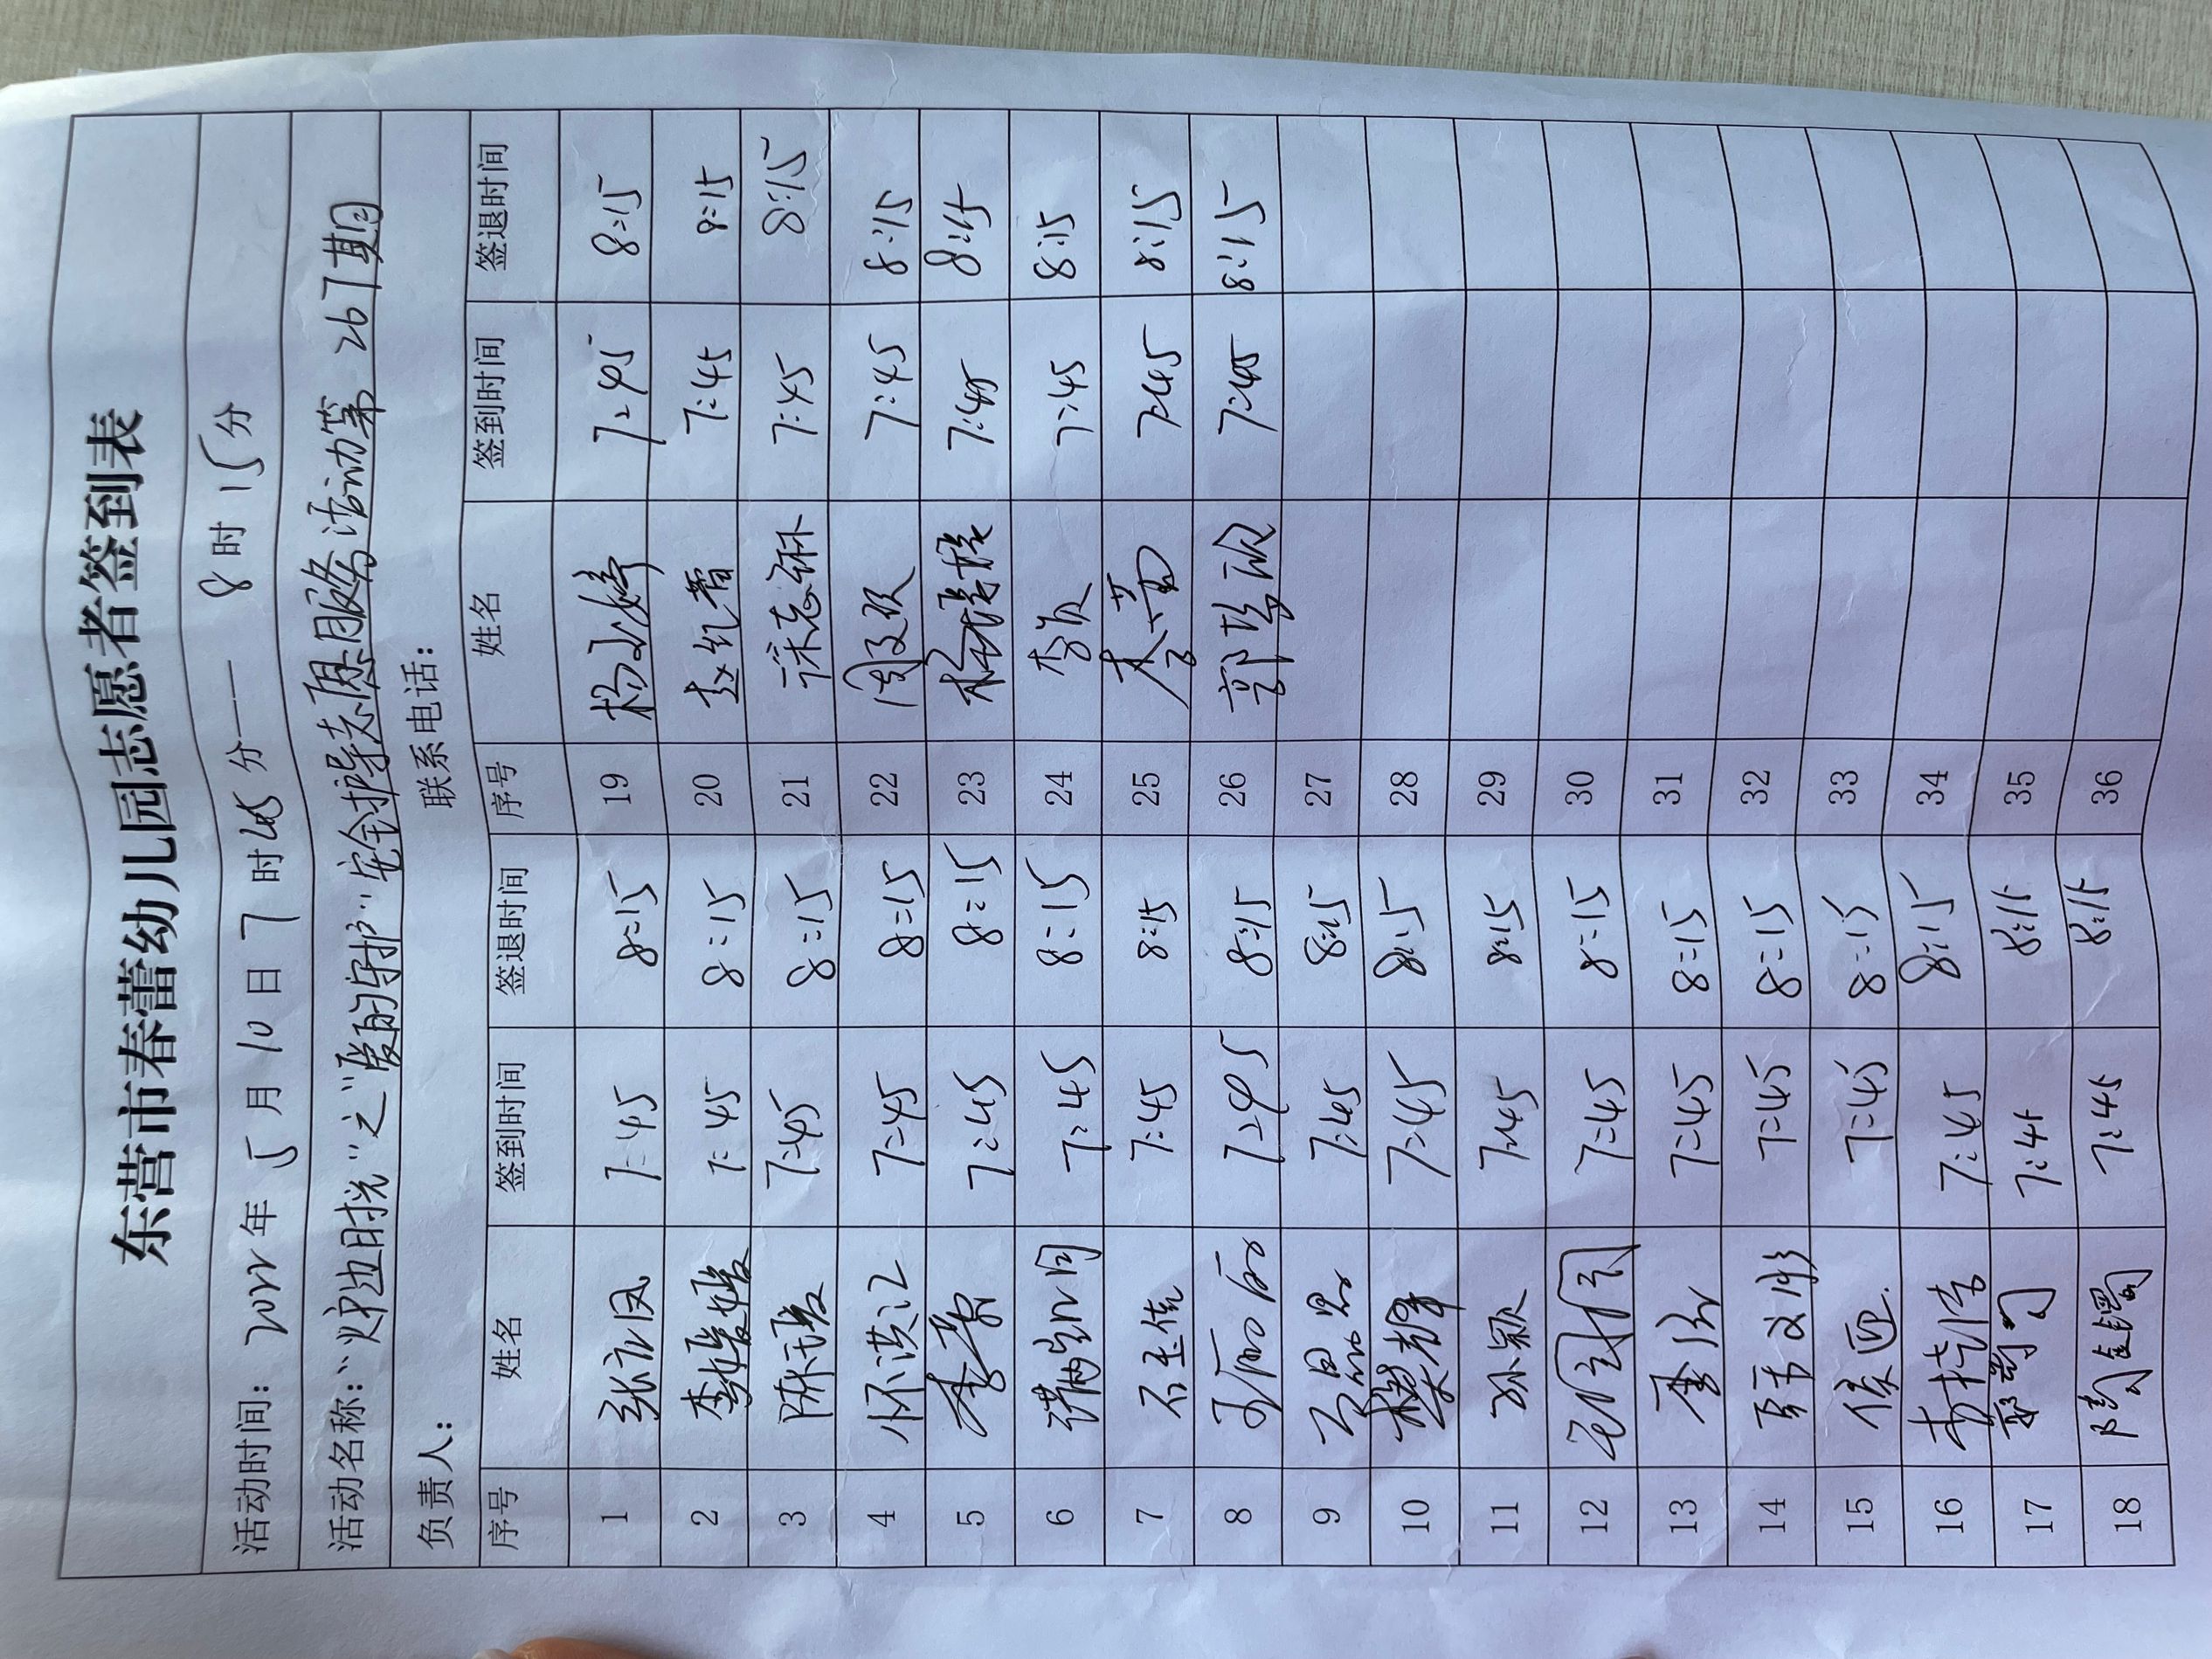 东营市春蕾幼儿园志愿者签到表
活动时间：2022年 5月 10日 7时45分—— 8时15分
活动名称："炉边时光"之"暖的守护"安全护导志愿服务活动第267期
负责人： 联系电话：
序号 姓名 签到时间 签退时间 序号 姓名 签到时间 签退时间
1 7:45 8:15 19 7:45 8:15
2 李媛媛 7:45 8:15 20 赵纪蕾 7:45 8:15
3 7:45 8:15 21 7:45 8:15
4 怀洪江 7:45 8:15 22 周玟 7:45 8:15
5 7:45 8:15 23 7:45 8:15
6 7:45 8:15 24 7:45 8:15
7 石玉倩 7:45 8:15 25 7:45 8:15
8 王丽丽 7:45 8:15 26 7:45 8:15
9 7:45 8:15 27
10 樊群群 7:45 8:15 28
11 孙颖 7:45 8:15 29
12 7:45 8:15 30
13 7:45 8:15 31
14 聂文彬 7:45 8:15 32
15 7:45 8:15 33
16 7:45 8:15 34
17 7:45 8:15 35
18 7:45 8:15 36